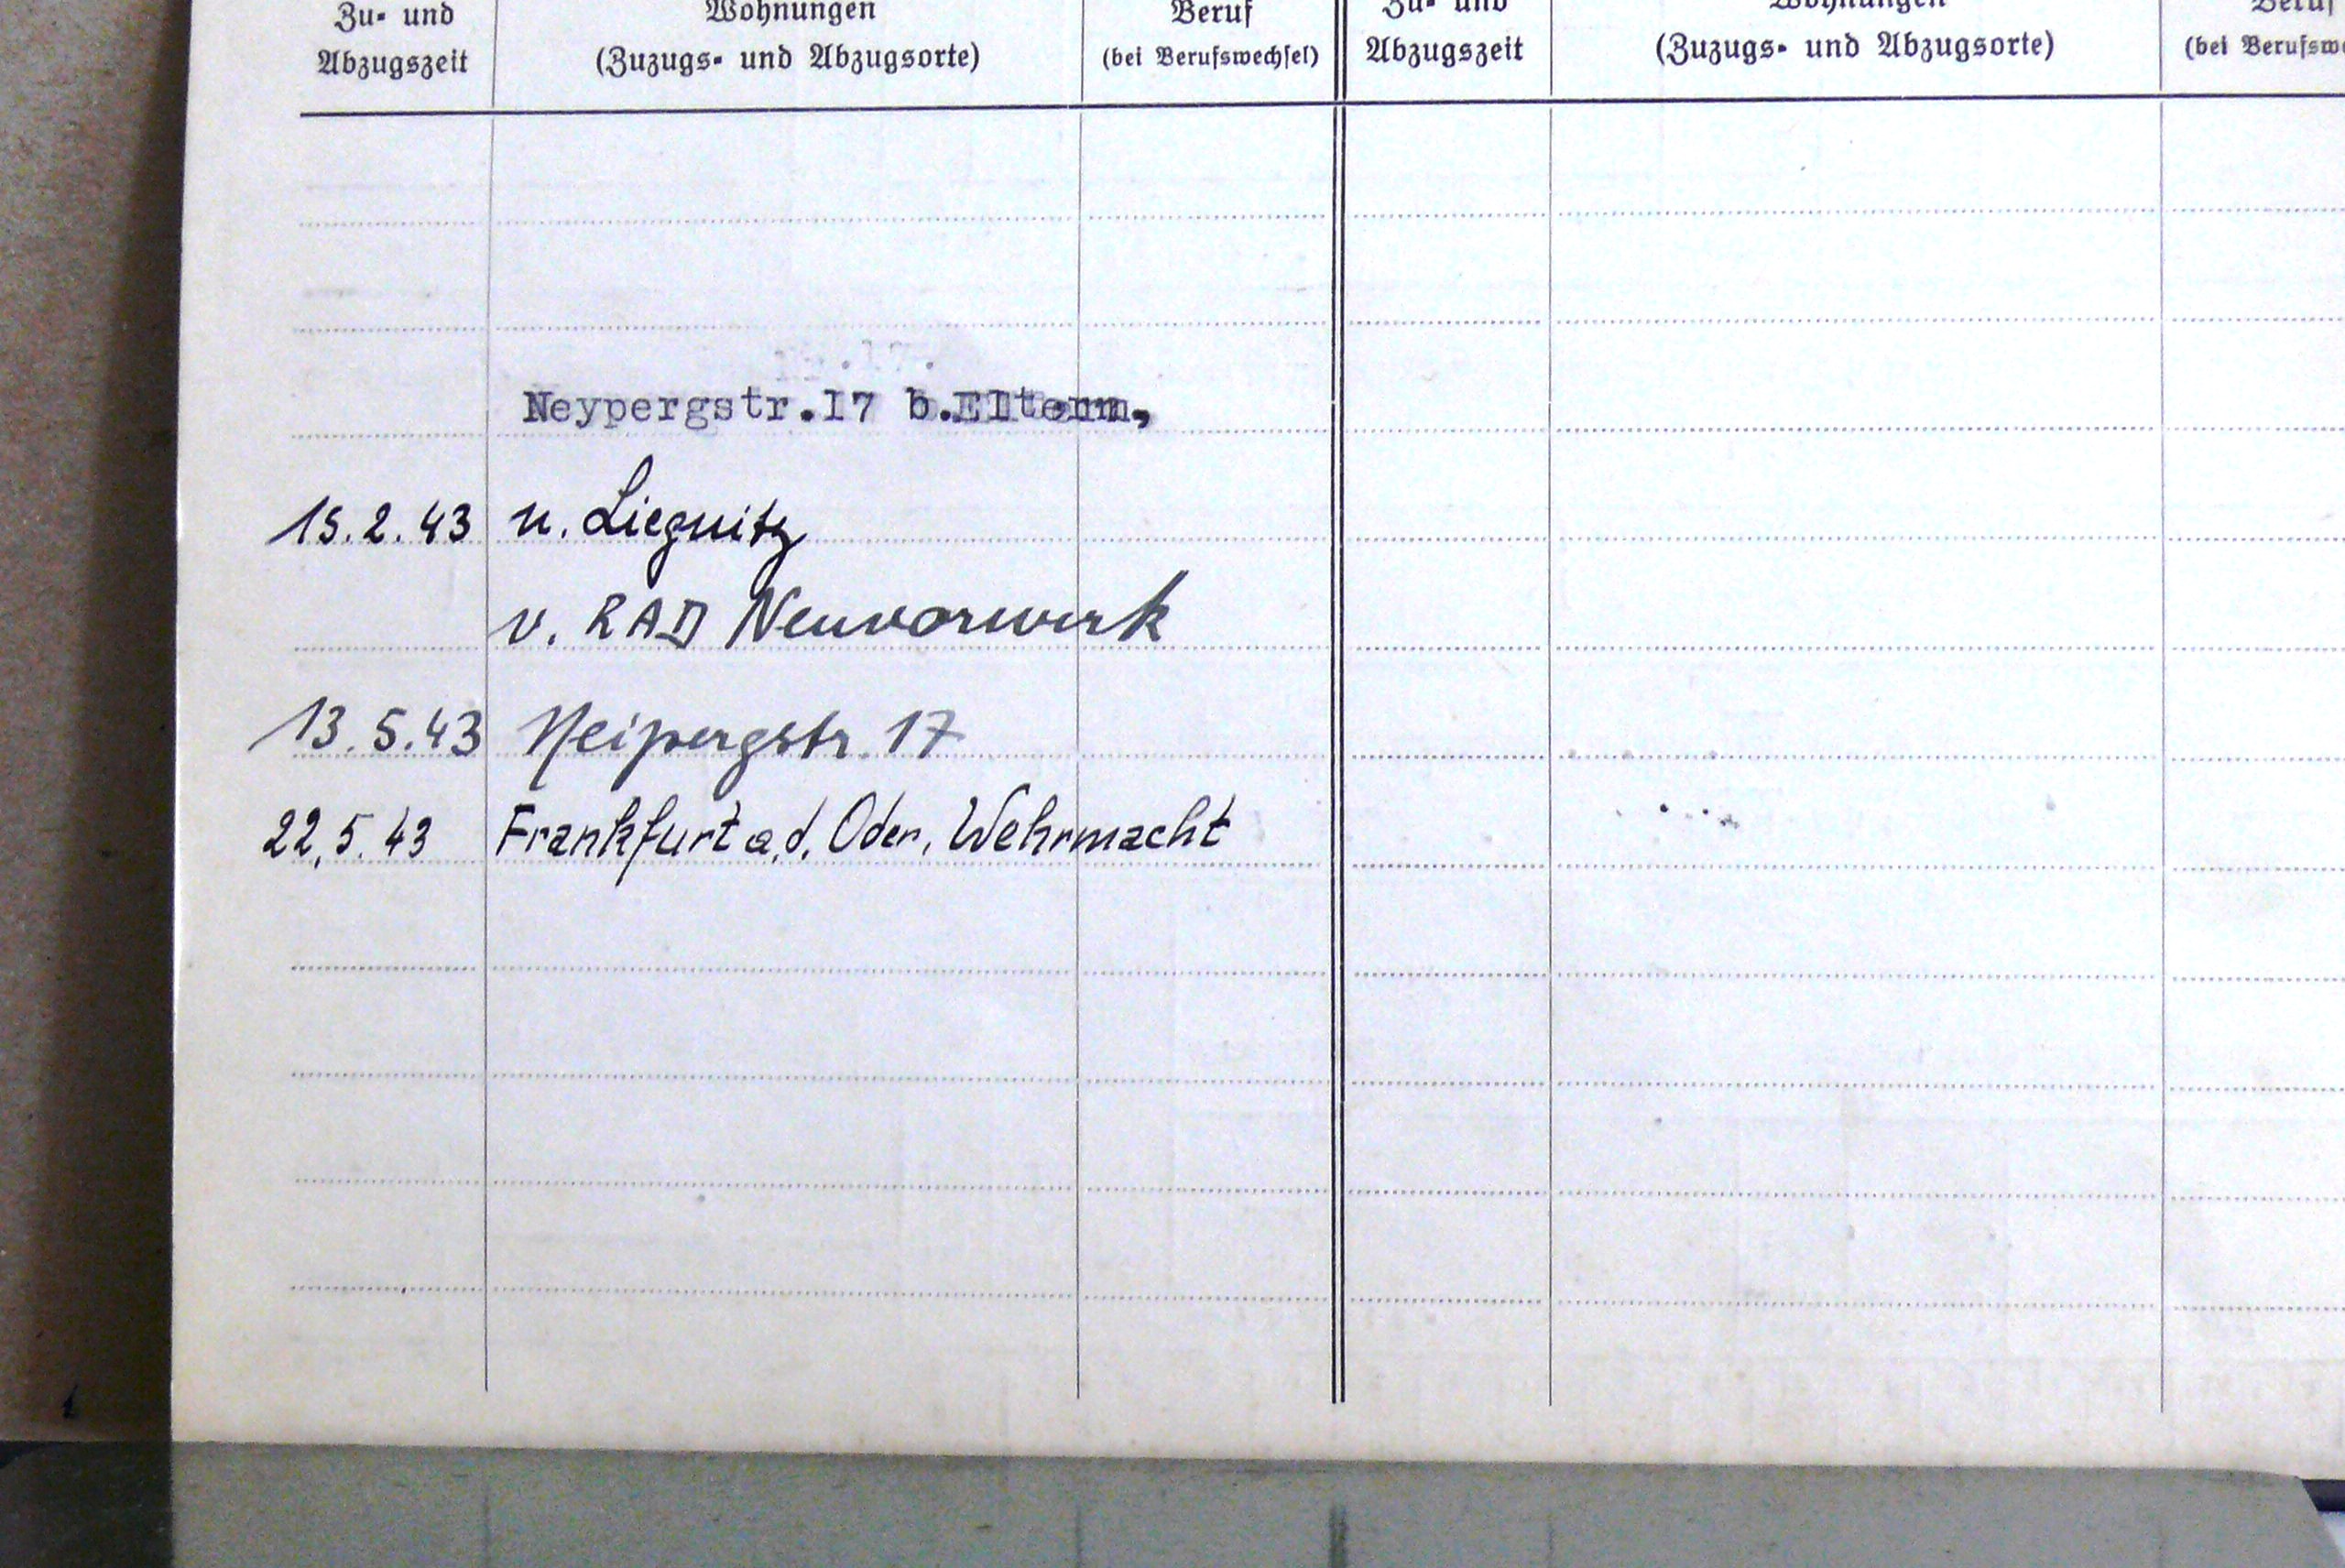 Zu- und Wohnungen Beruf Zu- und Wohnungen Beruf
Abzugszeit (Zuzugs- und Abzugsorte) (bei Berufswechsel) Abzugszeit (Zuzugs- und Abzugsorte) (bei Berufswe
Neypergstr.17 b.Eltern,
15.2.43 n. Liegnitz
v. RAD Neuvorwerk
13.5.43 Neipergstr. 17
22.5.43 Frankfurt a.d. Oder, Wehrmacht